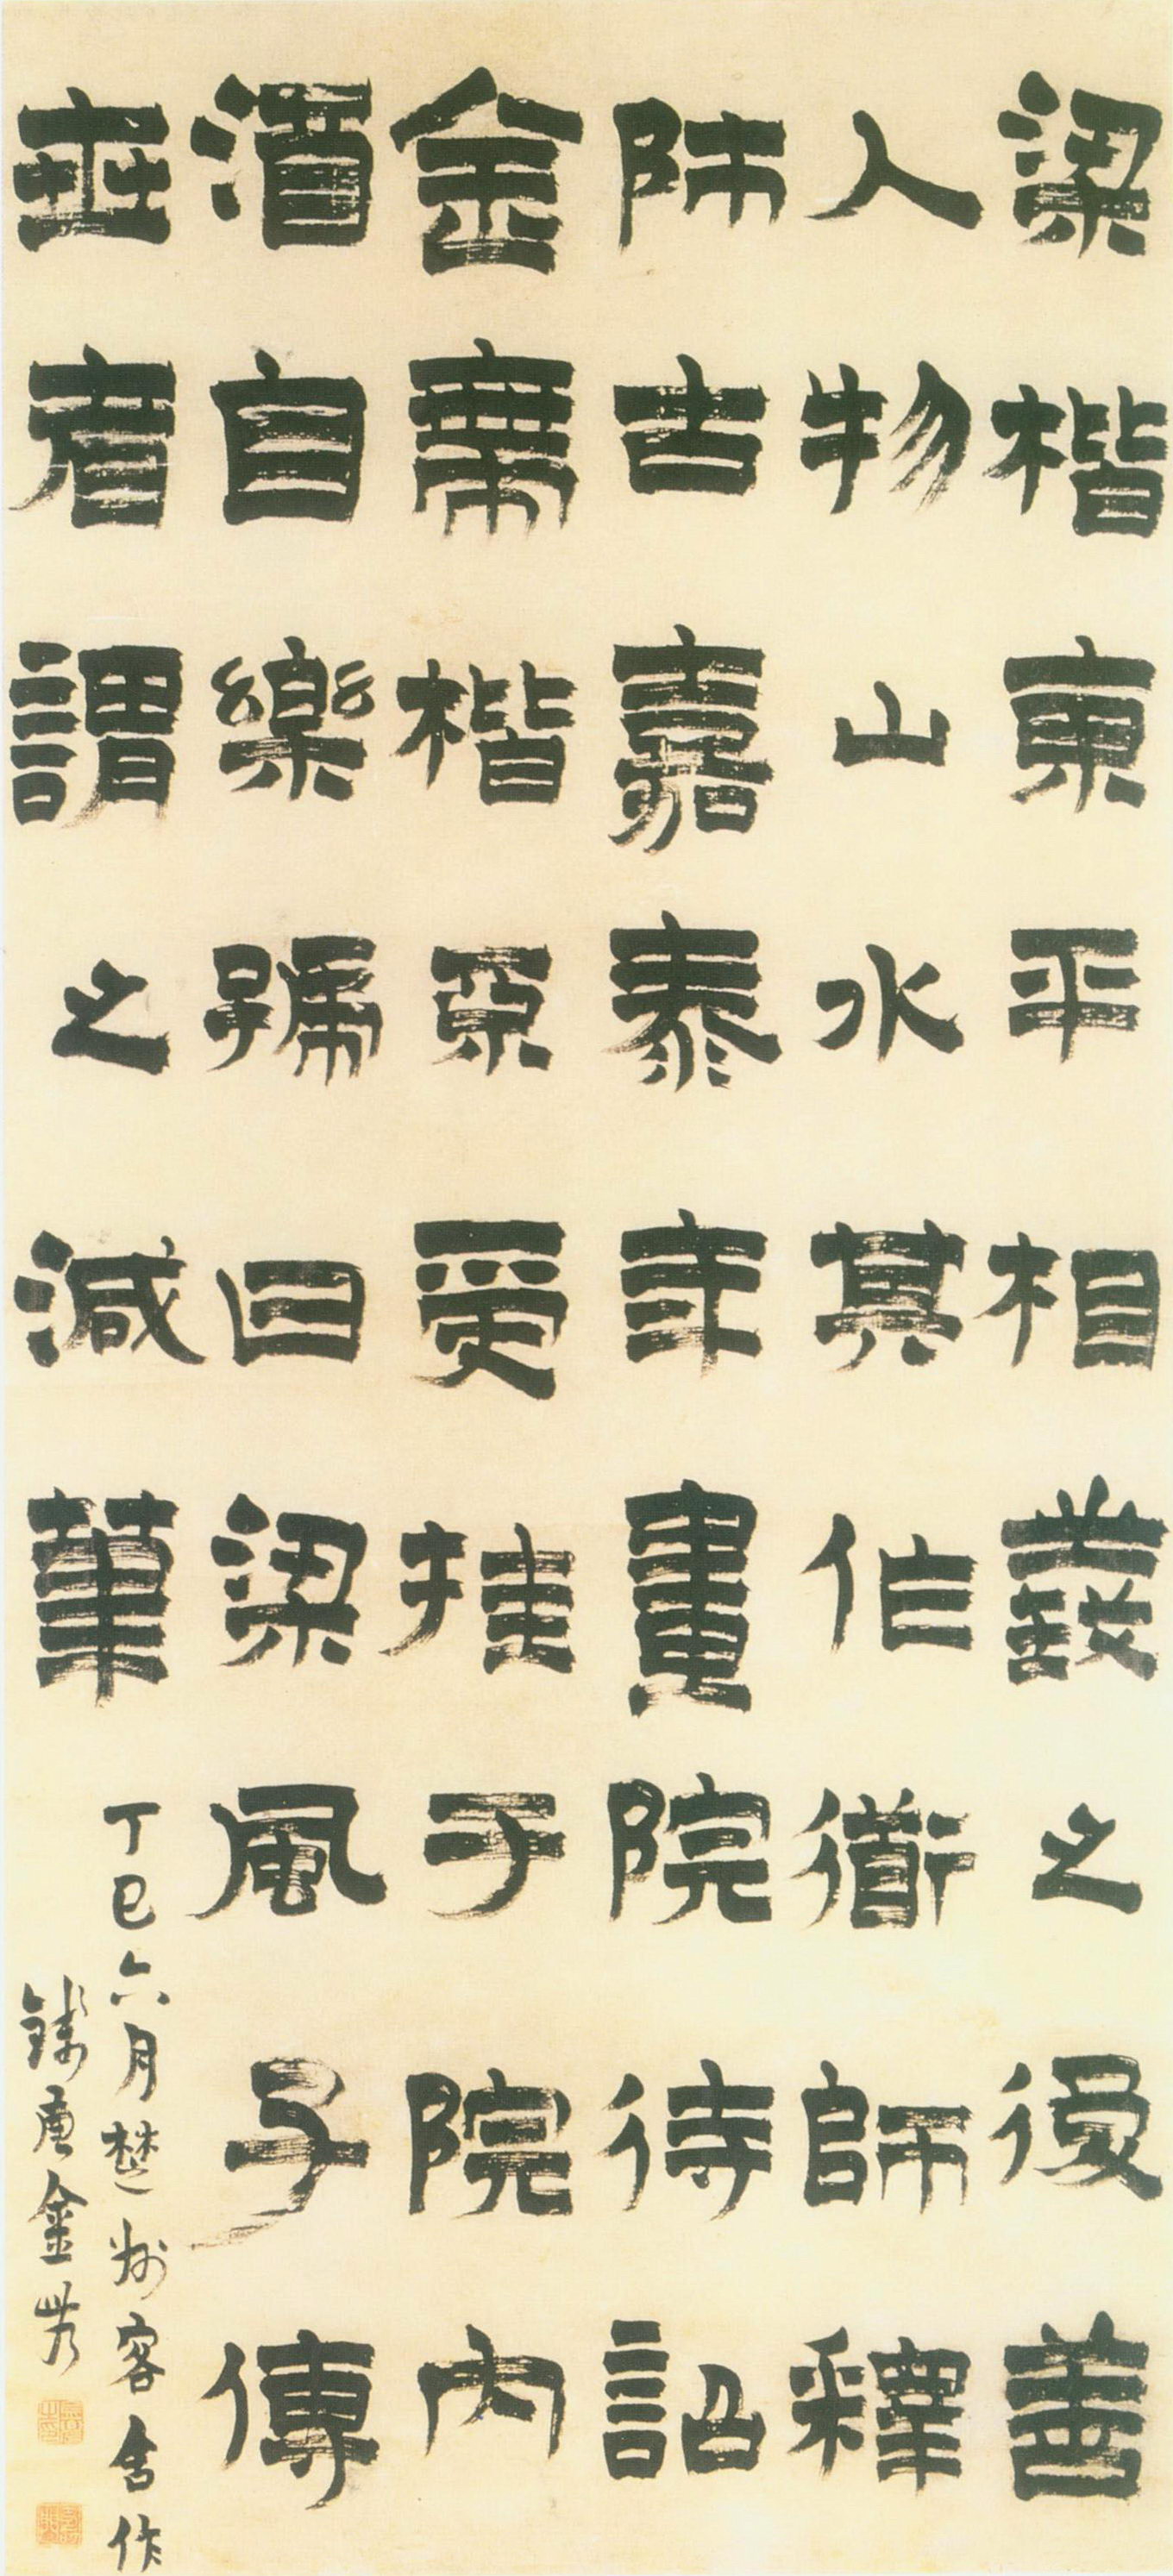 梁楷東平相之後善
人物山水其作衜師釋
師古嘉泰年畫院待詔
金帶楷受挂于院內
酒自樂號曰梁風子傳
世者謂之減筆
丁巳六月楚州客舍作
錢唐金農